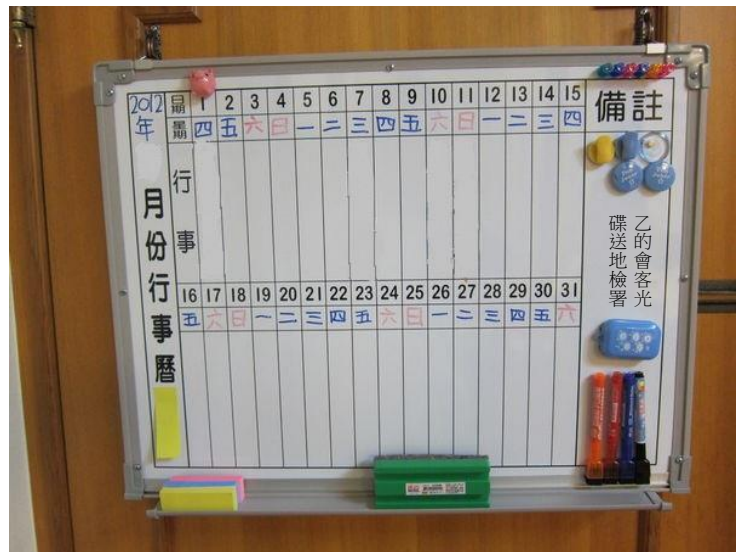 2012
年
月份行事曆
日期 1 2 3 4 5 6 7 8 9 10 11 12 13 14 15
星期 四 五 六 日 一 二 三 四 五 六 日 一 二 三 四
行事
16 17 18 19 20 21 22 23 24 25 26 27 28 29 30 31
五 六 日 一 二 三 四 五 六 日 一 二 三 四 五 六
備註
乙的會客光
碟送地檢署